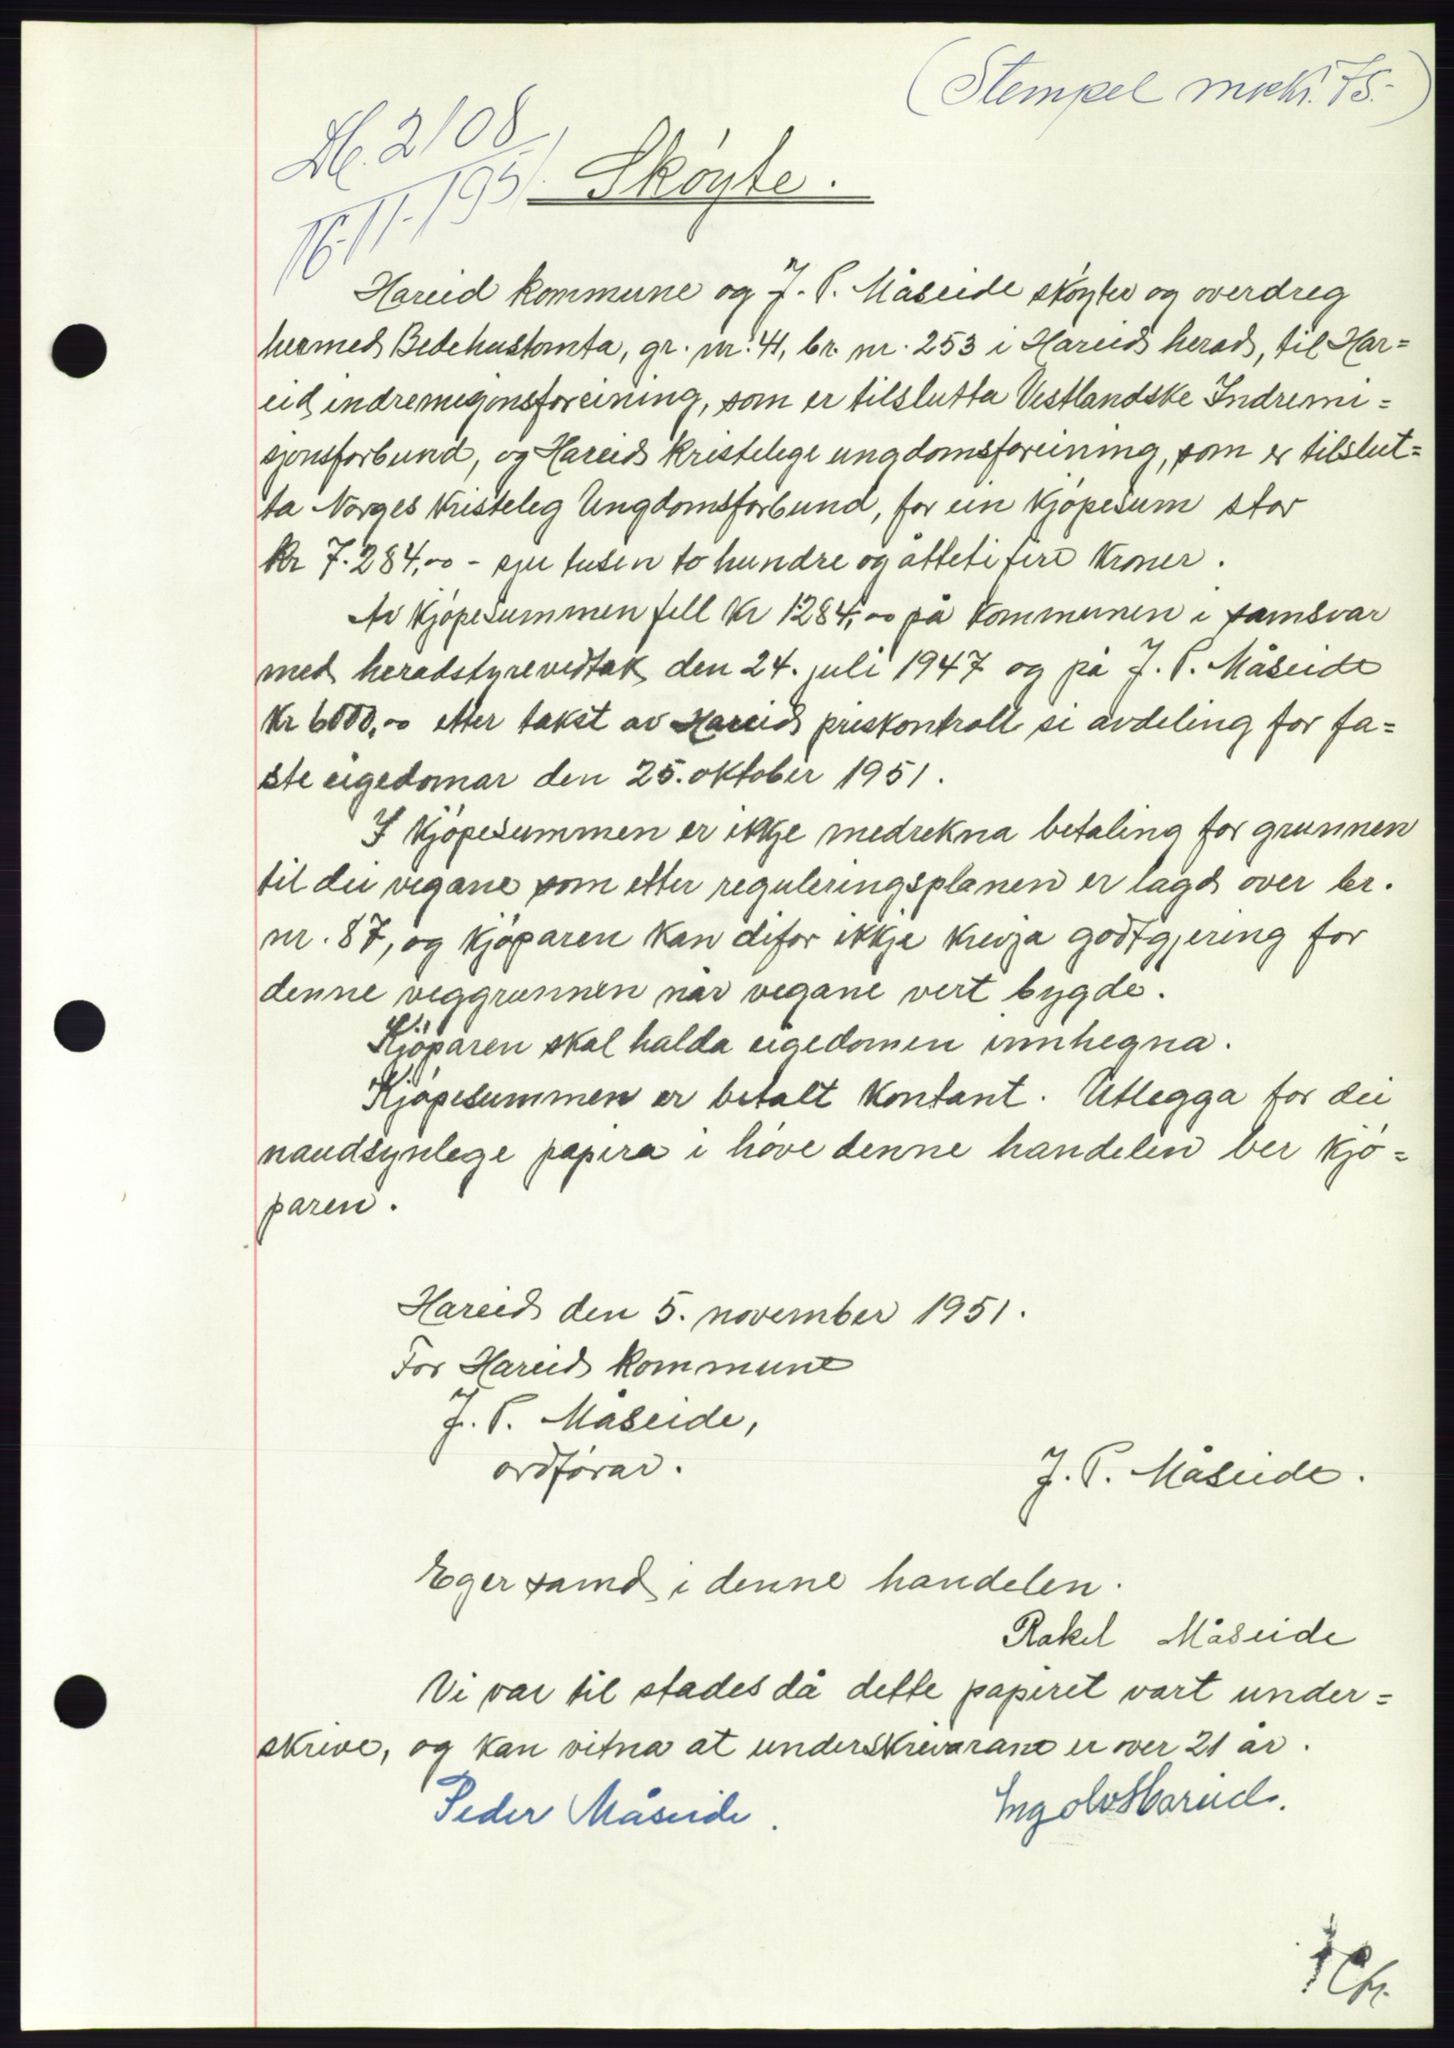 (Stempel mrk kr. 75.-)
Db. 2108
16-11-1951.
Skøyte.
Hareid kommune og J. P. Måseide skøyter og overdreg
hermed Bedehustomta, gr. nr. 41, br. nr. 253 i Hareid herad, til Har=
eid indremisjonsforeining, som er tilslutta Vestlandske Indremi=
sjonsforbund, og Hareid kristelege ungdomsforeining, som er tilslut=
ta Norges Kristeleg Ungdomsforbund, for ein kjøpesum stor
kr 7.284,00 - sju tusen to hundre og åtteti fire kroner.
Av kjøpesummen fell kr 1284,00 på kommunen i samsvar
med heradstyrevedtak den 24. juli 1947 og på J. P. Måseide
kr 6000,00 etter takst av Hareid priskontroll si avdeling for fa=
ste eigedomar den 25. oktober 1951.
I kjøpesummen er ikkje medrekna betaling for grunnen
til dei vegane som etter reguleringsplanen er lagd over br.
nr. 87, og kjøparen kan difor ikkje krevja godtgjering for
denne veggrunnen når vegane vert bygde.
Kjøparen skal halda eigedomen innhegna.
Kjøpesummen er betalt kontant. Utlegga for dei
naudsynlege papira i høve denne handelen ber kjø=
paren.
Hareid den 5. november 1951.
For Hareid kommune
J. P. Måseide,
ordførar.
J. P. Måseide.
Eg er samd i denne handelen.
Rakel Måseide
Vi var til stades då dette papiret vart under=
skrive, og kan vitna at underskrivarane er over 21 år.
Peder Måseide.
Ingolv Hareid.